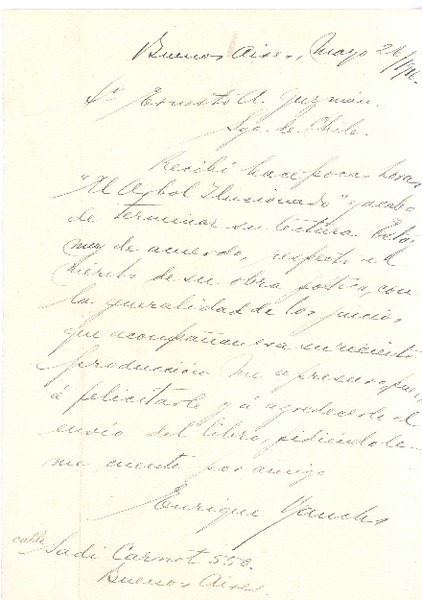 Buenos Aires, Mayo 26/916.
Sr Ernesto A. Guzmán.
Sgo. de Chile.
Recibí hace pocas horas
"El Arbol Ilusionado" y acabo
de terminar su lectura. Estoy
muy de acuerdo, respecto al
mérito de su obra poética, con
la generalidad de los juicios
que acompañan esa su reciente
producción. Me apresuro, pues,
á felicitarle y á agradecerle el
envío del libro, pidiéndole
me cuente por amigo
Enrique
calle Sadi Carnot 550.
Buenos Aires.